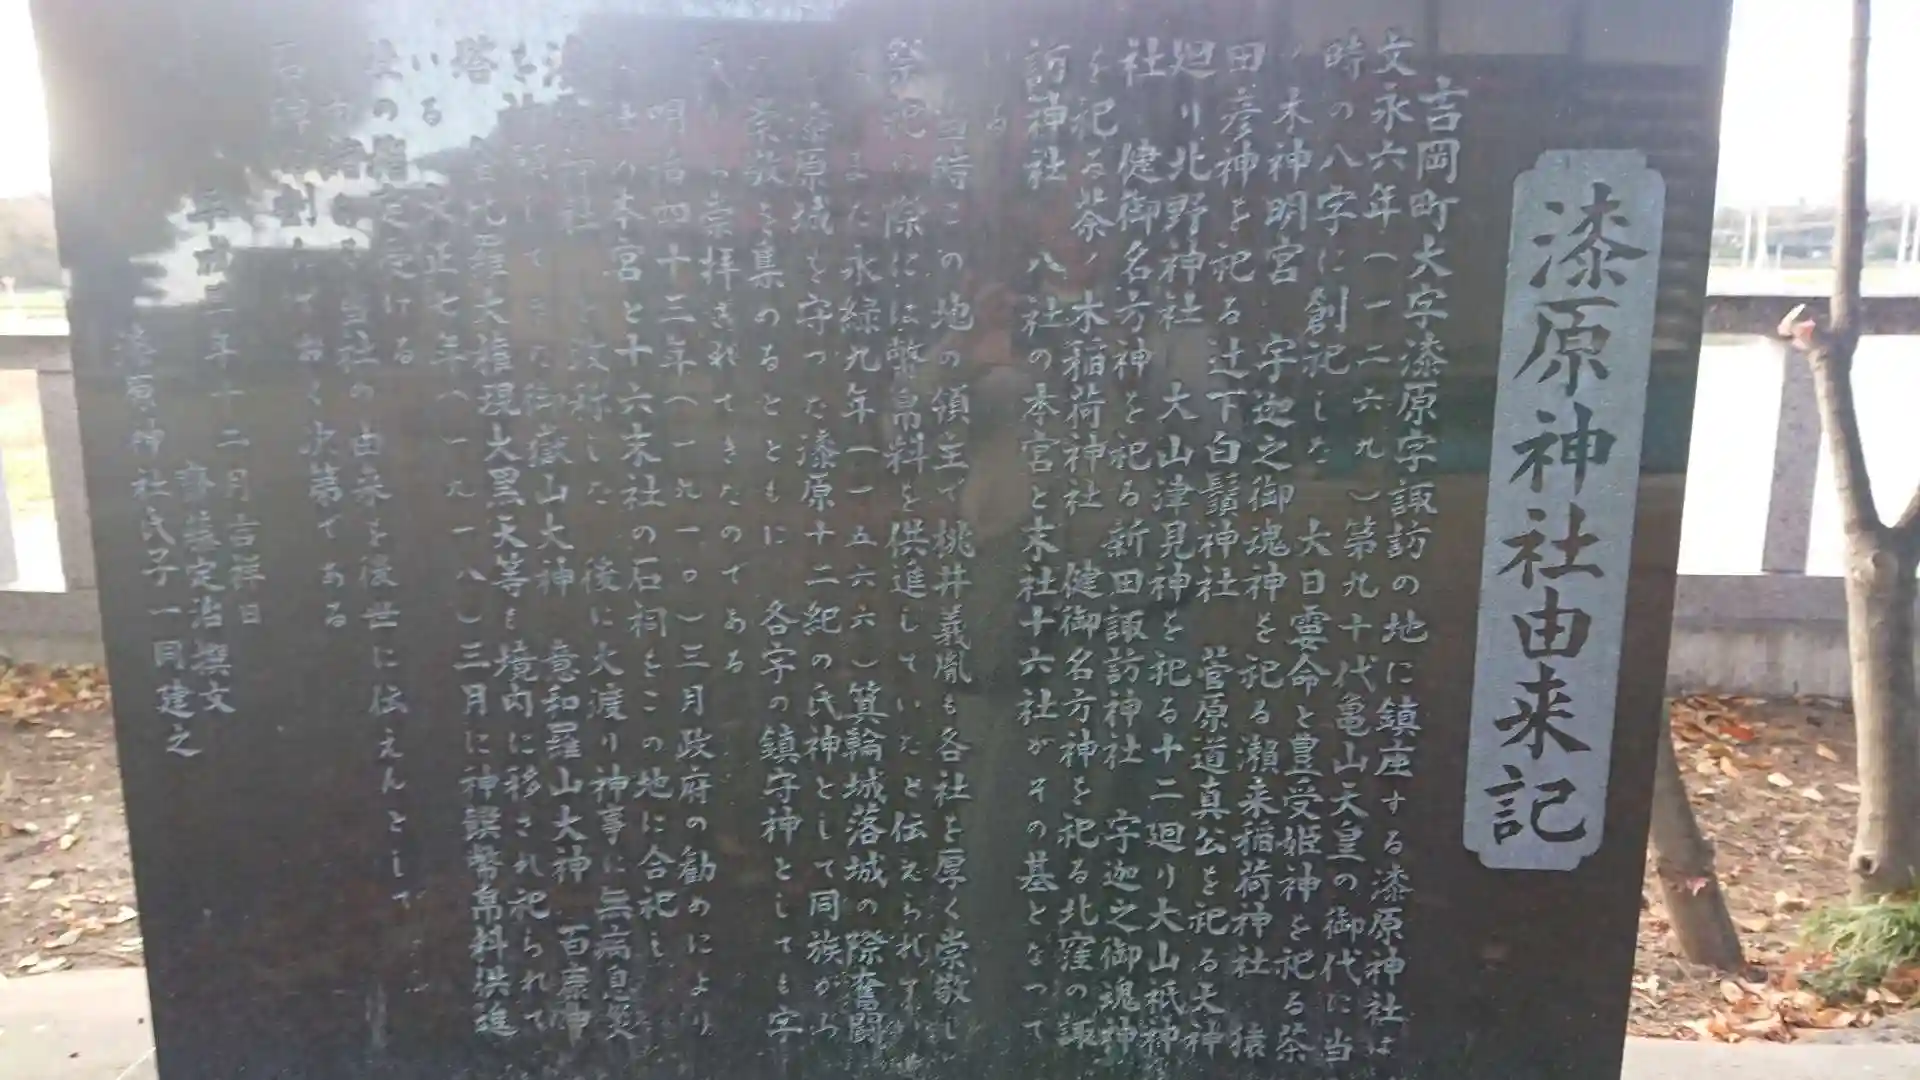 漆原神社由来記
吉岡町大字漆原字諏訪の地に鎮座する漆原神社は
文永六年(一二六九)第九十代亀山天皇の御代に当
時の八字に創祀した 大日孁命と豊受姫神を祀る茶
ノ木神明宮 宇迦之御魂神を祀る瀬来稲荷神社 猿
田彦神を祀る辻下白鬚神社 菅原道真公を祀る天神
廻り北野神社 大山津見神を祀る十二廻り大山祇神
社 健御名方神を祀る新田諏訪神社 宇迦之御魂神
を祀る茶ノ木稲荷神社 健御名方神を祀る北窪の諏
訪神社 八社の本宮と末社十六社がその基となって
いる
当時この地の領主で桃井義胤も各社を厚く崇敬し
祭祀の際には幣帛料を供進していたと伝えられてい
るまた永緑九年(一五六六)箕輪城落城の際奮闘
し漆原城を守った漆原十二紀の氏神として同族から
の崇敬を集めるとともに 各字の鎮守神としても字
民から崇拝されてきたのである
明治四十三年(一九一〇)三月政府の勧めにより
八社の本宮と十六末社の石祠をこの地に合祀し
漆原神社と改称した 後に大渡り神事に無病息災
を祈願してきた御嶽山大神 意和羅山大神 百庚申
塔 金比羅大権現大黒天等も境内に移され祀られて
いる 大正七年(一九一八)三月に神饌幣帛料供進
社の指定を受ける
当社の由来を後世に伝えんとして
石碑 ておく次第である
年十二月吉祥日
齋藤定治撰文
漆原神社氏子一同建之